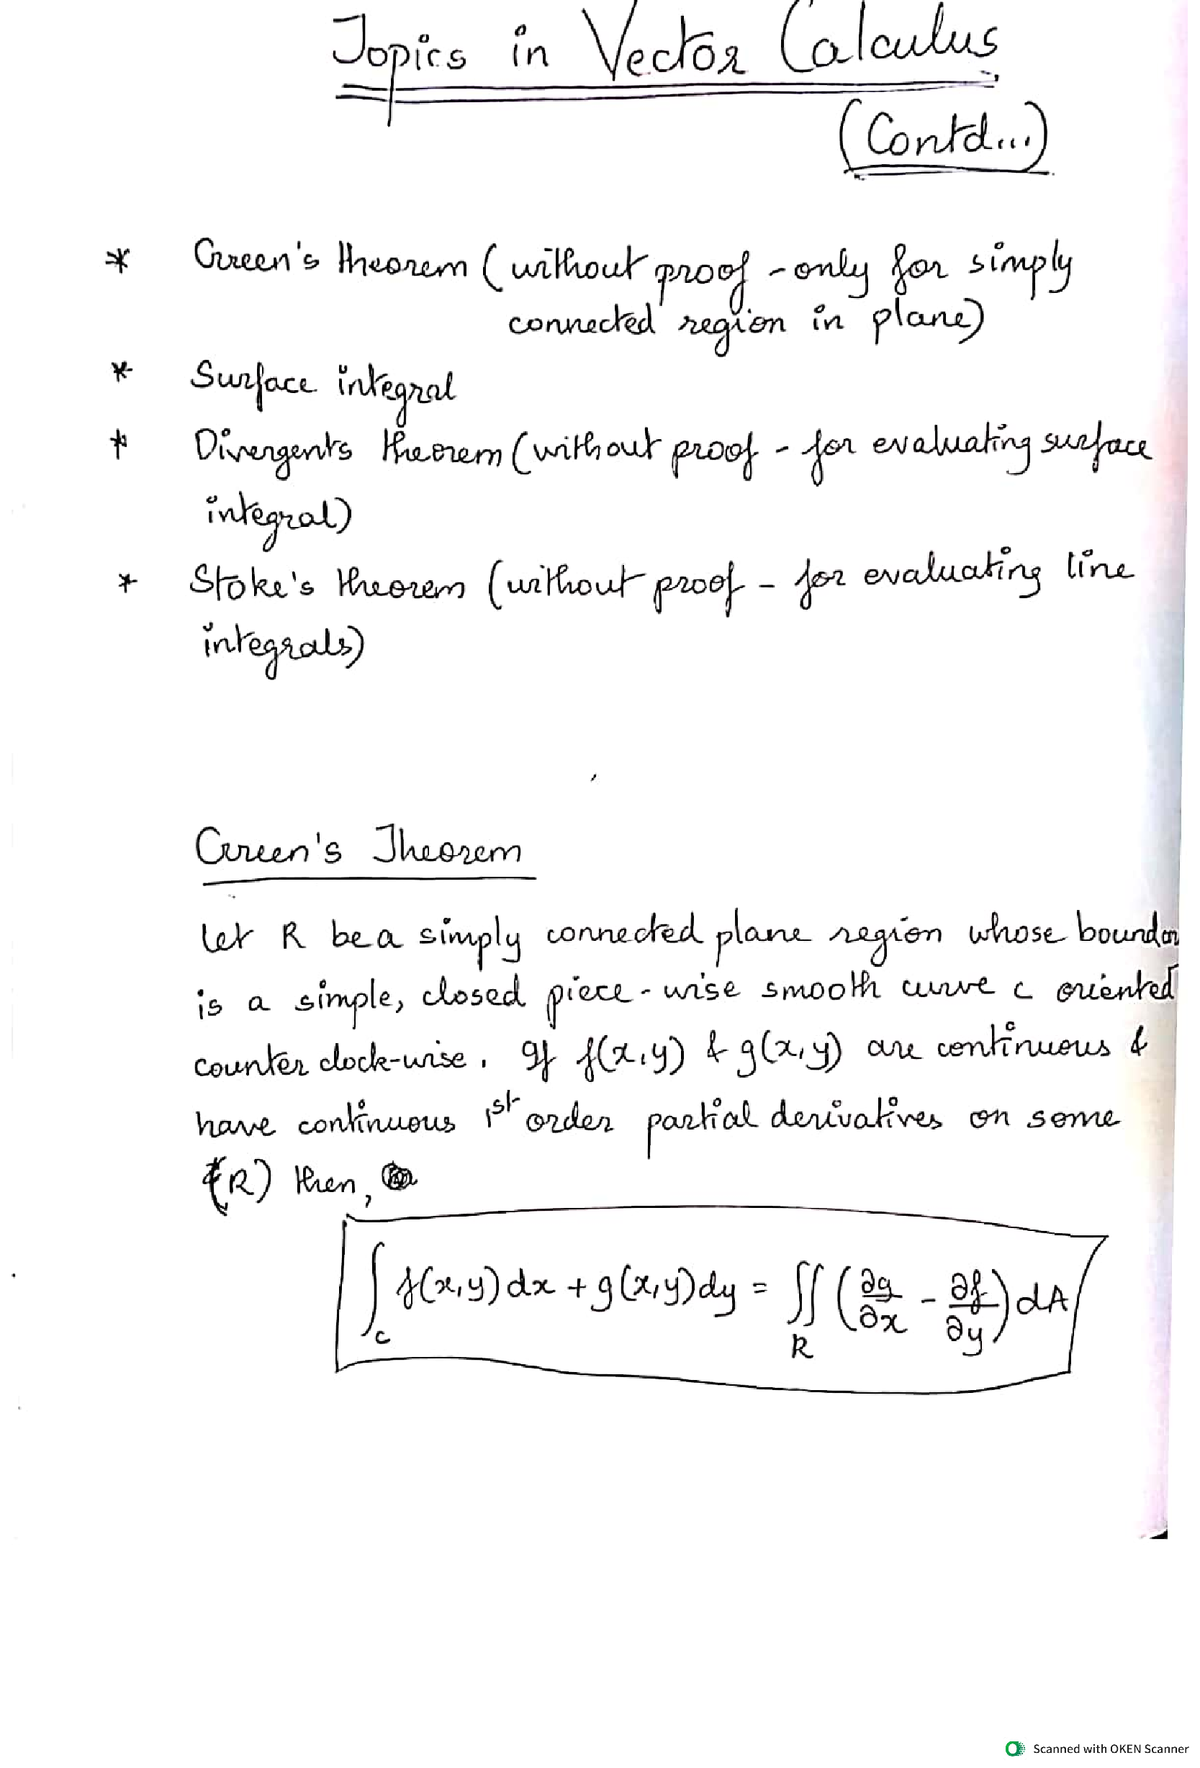 Topics in Vector Calculus
(Contd...)
* Green's theorem (without proof - only for simply
connected region in plane)
* Surface integral
* Divergents theorem (without proof - for evaluating surface
integral)
* Stoke's theorem (without proof - for evaluating line
integrals)
Green's Theorem
Let R be a simply connected plane region whose boundar
is a simple, closed piece-wise smooth curve c oriented
counter clock-wise. If f(x,y) & g(x,y) are continuous &
have continuous 1st order partial derivatives on some
(R) then,
∫_c f(x,y) dx + g(x,y) dy = ∬_R (∂g/∂x - ∂f/∂y) dA
Scanned with OKEN Scanner